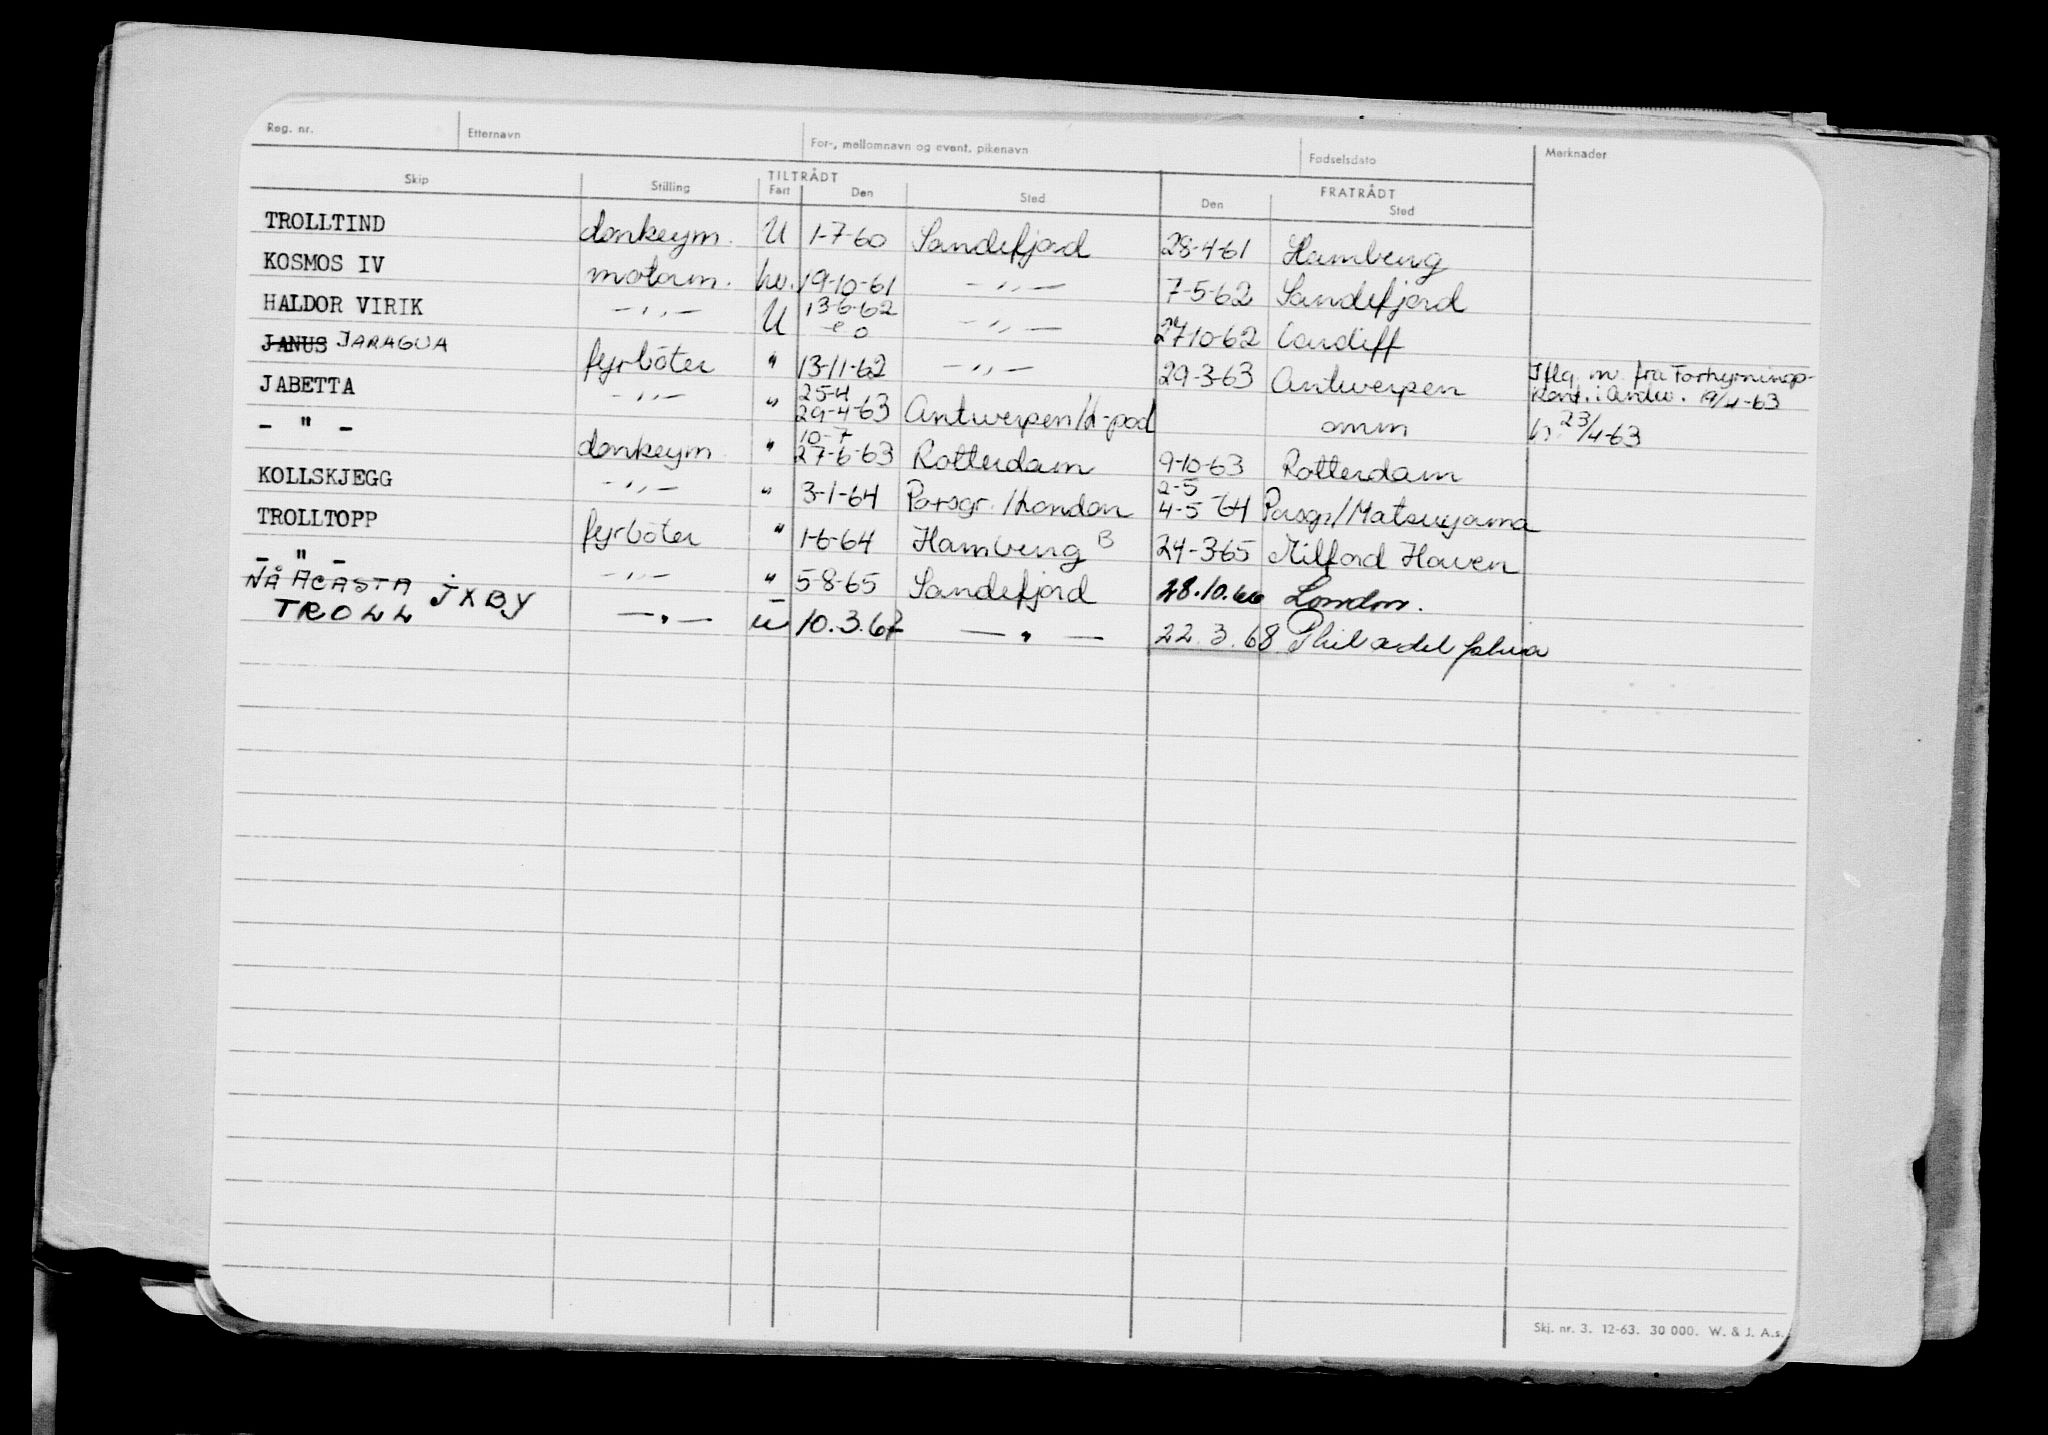 Reg. nr. Etternavn For-, mellomnavn og event. pikenavn Fødselsdato Merknader
Skip Stilling TILTRÅDT FRATRÅDT
Fart Den Sted Den Sted
TROLLTIND donkeym. U 1-7-60 Sandefjord 28-4-61 Hamburg
KOSMOS IV motorm. hv. 19-10-61 -,,- 7-5-62 Sandefjord
HALDOR VIRIK -,,- U 13-6-62 -,,- 27-10-62 Cardiff
JANUS JARAGUA fyrbøter " 13-11-62 -,,- 29-3-63 Antwerpen Iflg. m. fra Forhyrnings-
kont. i Antw. 19/4-63
JABETTA -,,- " 25-4 29-4-63 Antwerpen/h-pod omm 23/4-63
- " - donkeym " 10-7 27-6-63 Rotterdam 9-10-63 Rotterdam
KOLLSKJEGG -,,- " 3-1-64 Porsgr./London 2-5 4-5-64 Porsgr/Matsuyama
TROLLTOPP fyrbøter " 1-6-64 Hamburg B 24-3-65 Milford Haven
- " - -,,- " 5-8-65 Sandefjord 28.10.66 London.
NÅ ACASTA JXBY
TROLL -"- u 10.3.67 -"- 22.3.68 Philadelphia
Skj. nr. 3. 12-63. 30 000. W. & J. A.s.